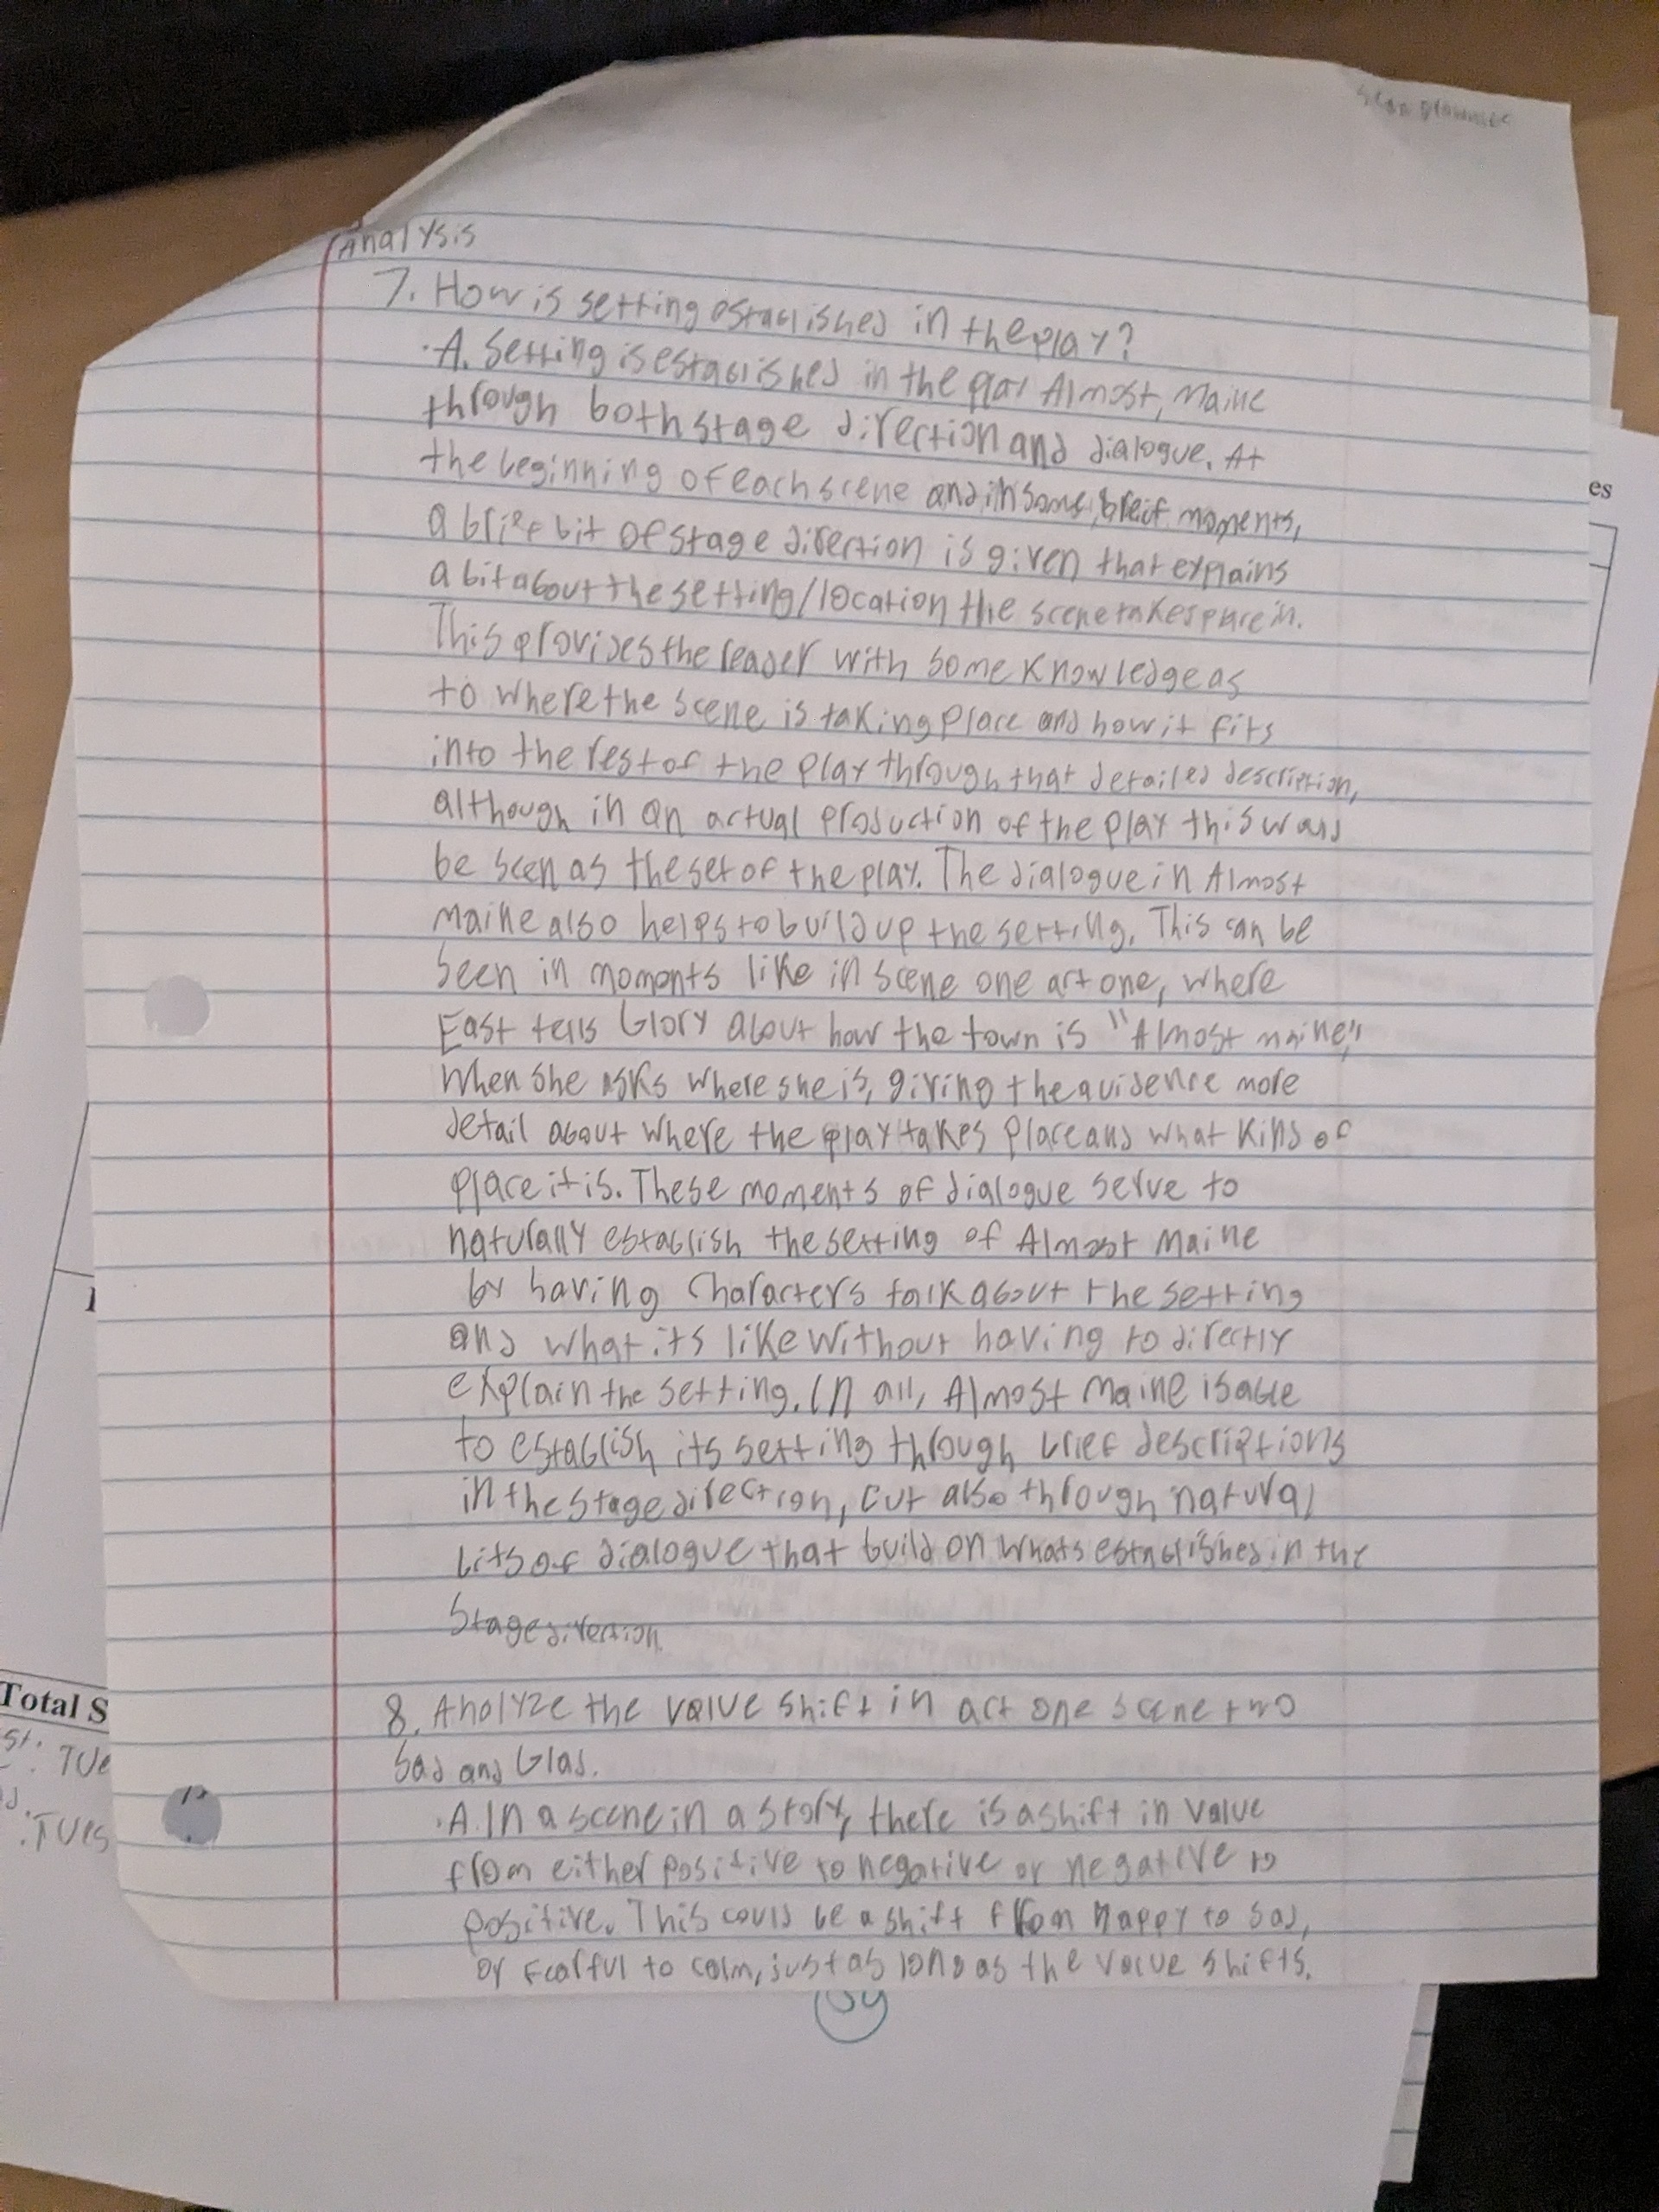 Analysis
7. How is setting established in the play?
·A. Setting is established in the play Almost, Maine
through both stage direction and dialogue. At
the beginning of each scene and in some, breif moments,
a brief bit of stage direction is given that explains
a bit about the setting/location the scene takes place in.
This provides the reader with some knowledge as
to where the scene is taking place and how it fits
into the rest of the play through that detailed description,
although in an actual production of the play this would
be seen as the set of the play. The dialogue in Almost
Maine also helps to build up the setting. This can be
seen in moments like in scene one act one, where
East tells Glory about how the town is "Almost maine,"
when she asks where she is, giving the auidence more
detail about where the play takes place and what kind of
place it is. These moments of dialogue serve to
naturally establish the setting of Almost Maine
by having characters talk about the setting
and what its like without having to directly
explain the setting. In all, Almost Maine is able
to establish its setting through brief descriptions
in the stage direction, but also through natural
bits of dialogue that build on whats established in the
stage direction.
8. Analyze the value shift in act one scene two
Sad and Glad.
·A. In a scene in a story, there is a shift in value
from either positive to negative or negative to
positive. This could be a shift from happy to sad,
or fearful to calm, just as long as the value shifts.
es
Total S
st.
TUe
.TUes